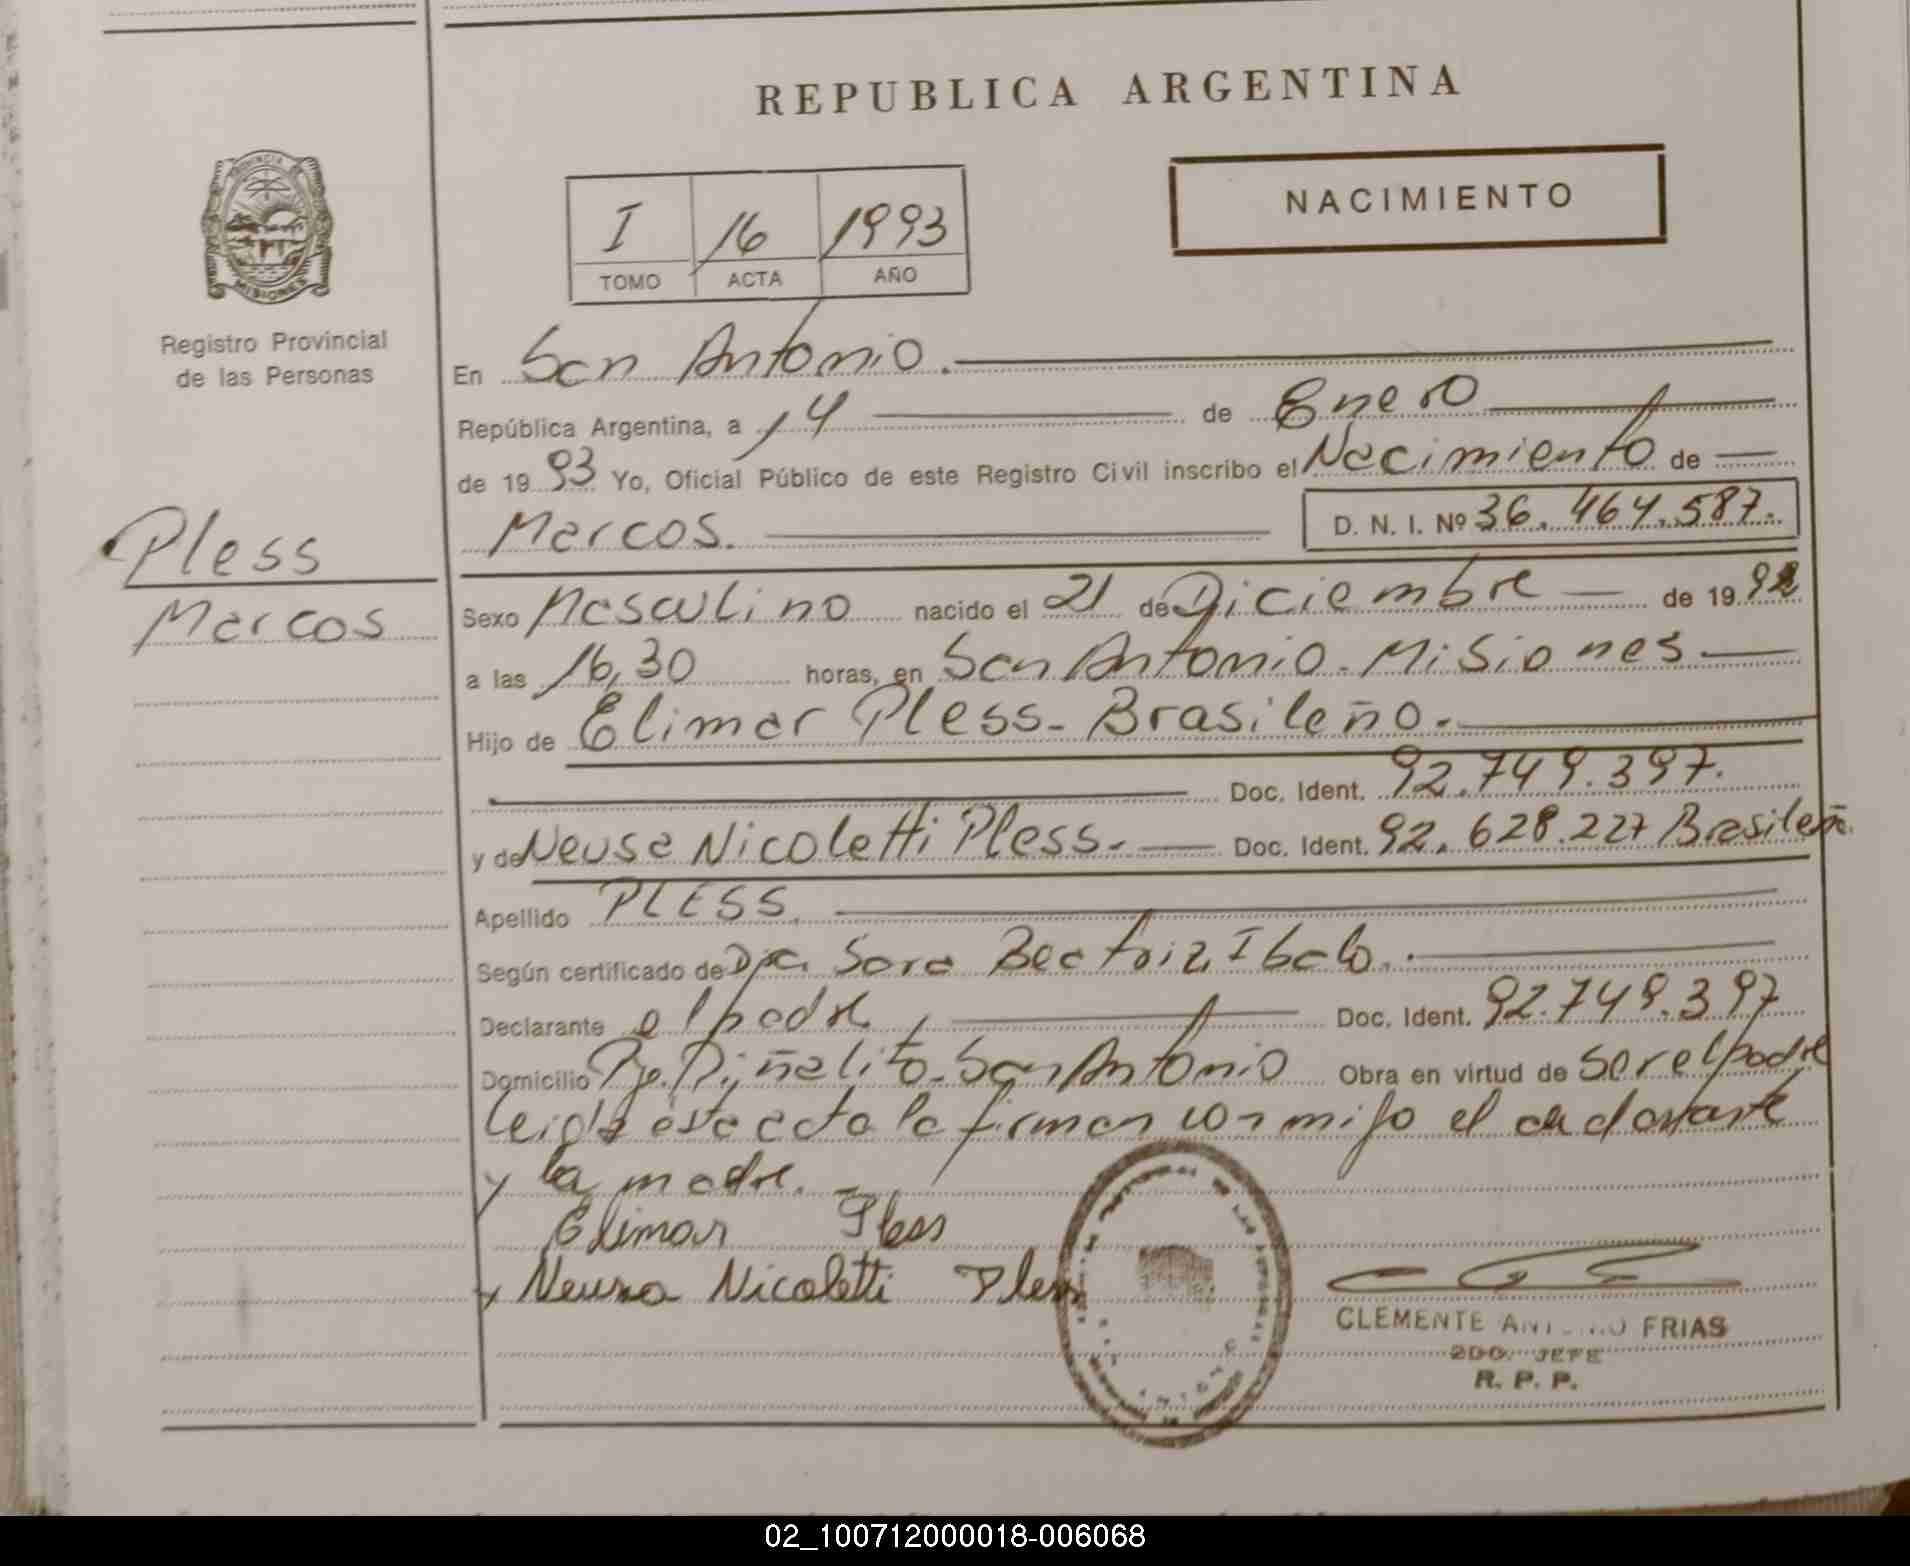 REPUBLICA ARGENTINA
PROVINCIA
MISIONES
Registro Provincial
de las Personas
NACIMIENTO
I 16 1993
TOMO ACTA AÑO
En San Antonio.
República Argentina, a 14 de Enero
de 1993 Yo, Oficial Público de este Registro Civil inscribo el Nacimiento de
Marcos. D. N. I. Nº 36.464.587.
Pless
Marcos
Sexo Masculino nacido el 21 de Diciembre de 1992
a las 16,30 horas, en San Antonio. Misiones
Hijo de Elimar Pless- Brasileño.
Doc. Ident. 92.749.397.
y de Neusa Nicoletti Pless. Doc. Ident. 92.628.227 Brasileña.
Apellido PLESS.
Según certificado de Dra. Sara Beatriz Ibalo.
Declarante el padre, Doc. Ident. 92.749.397
Domicilio Pje. Piñalito- San Antonio Obra en virtud de Ser el padre
leida este acta la firman conmigo el
y la madre.
Elimar Pless
y Neusa Nicoletti Pless
CLEMENTE ANTONIO FRIAS
2DO. JEFE
R. P. P.
02_100712000018-006068